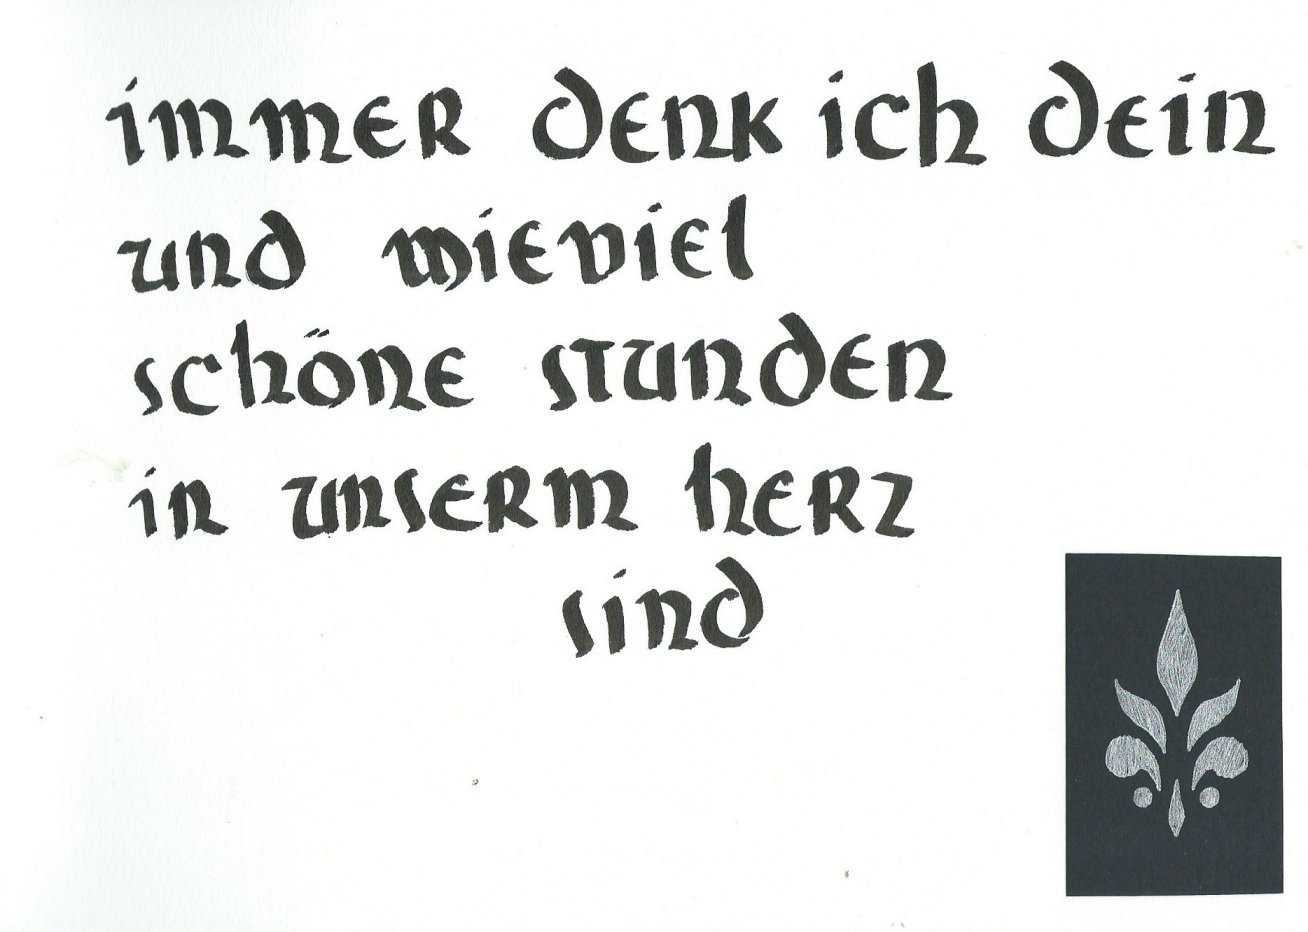 immer denk ich dein
und wieviel
schöne stunden
in unserm herz
sind